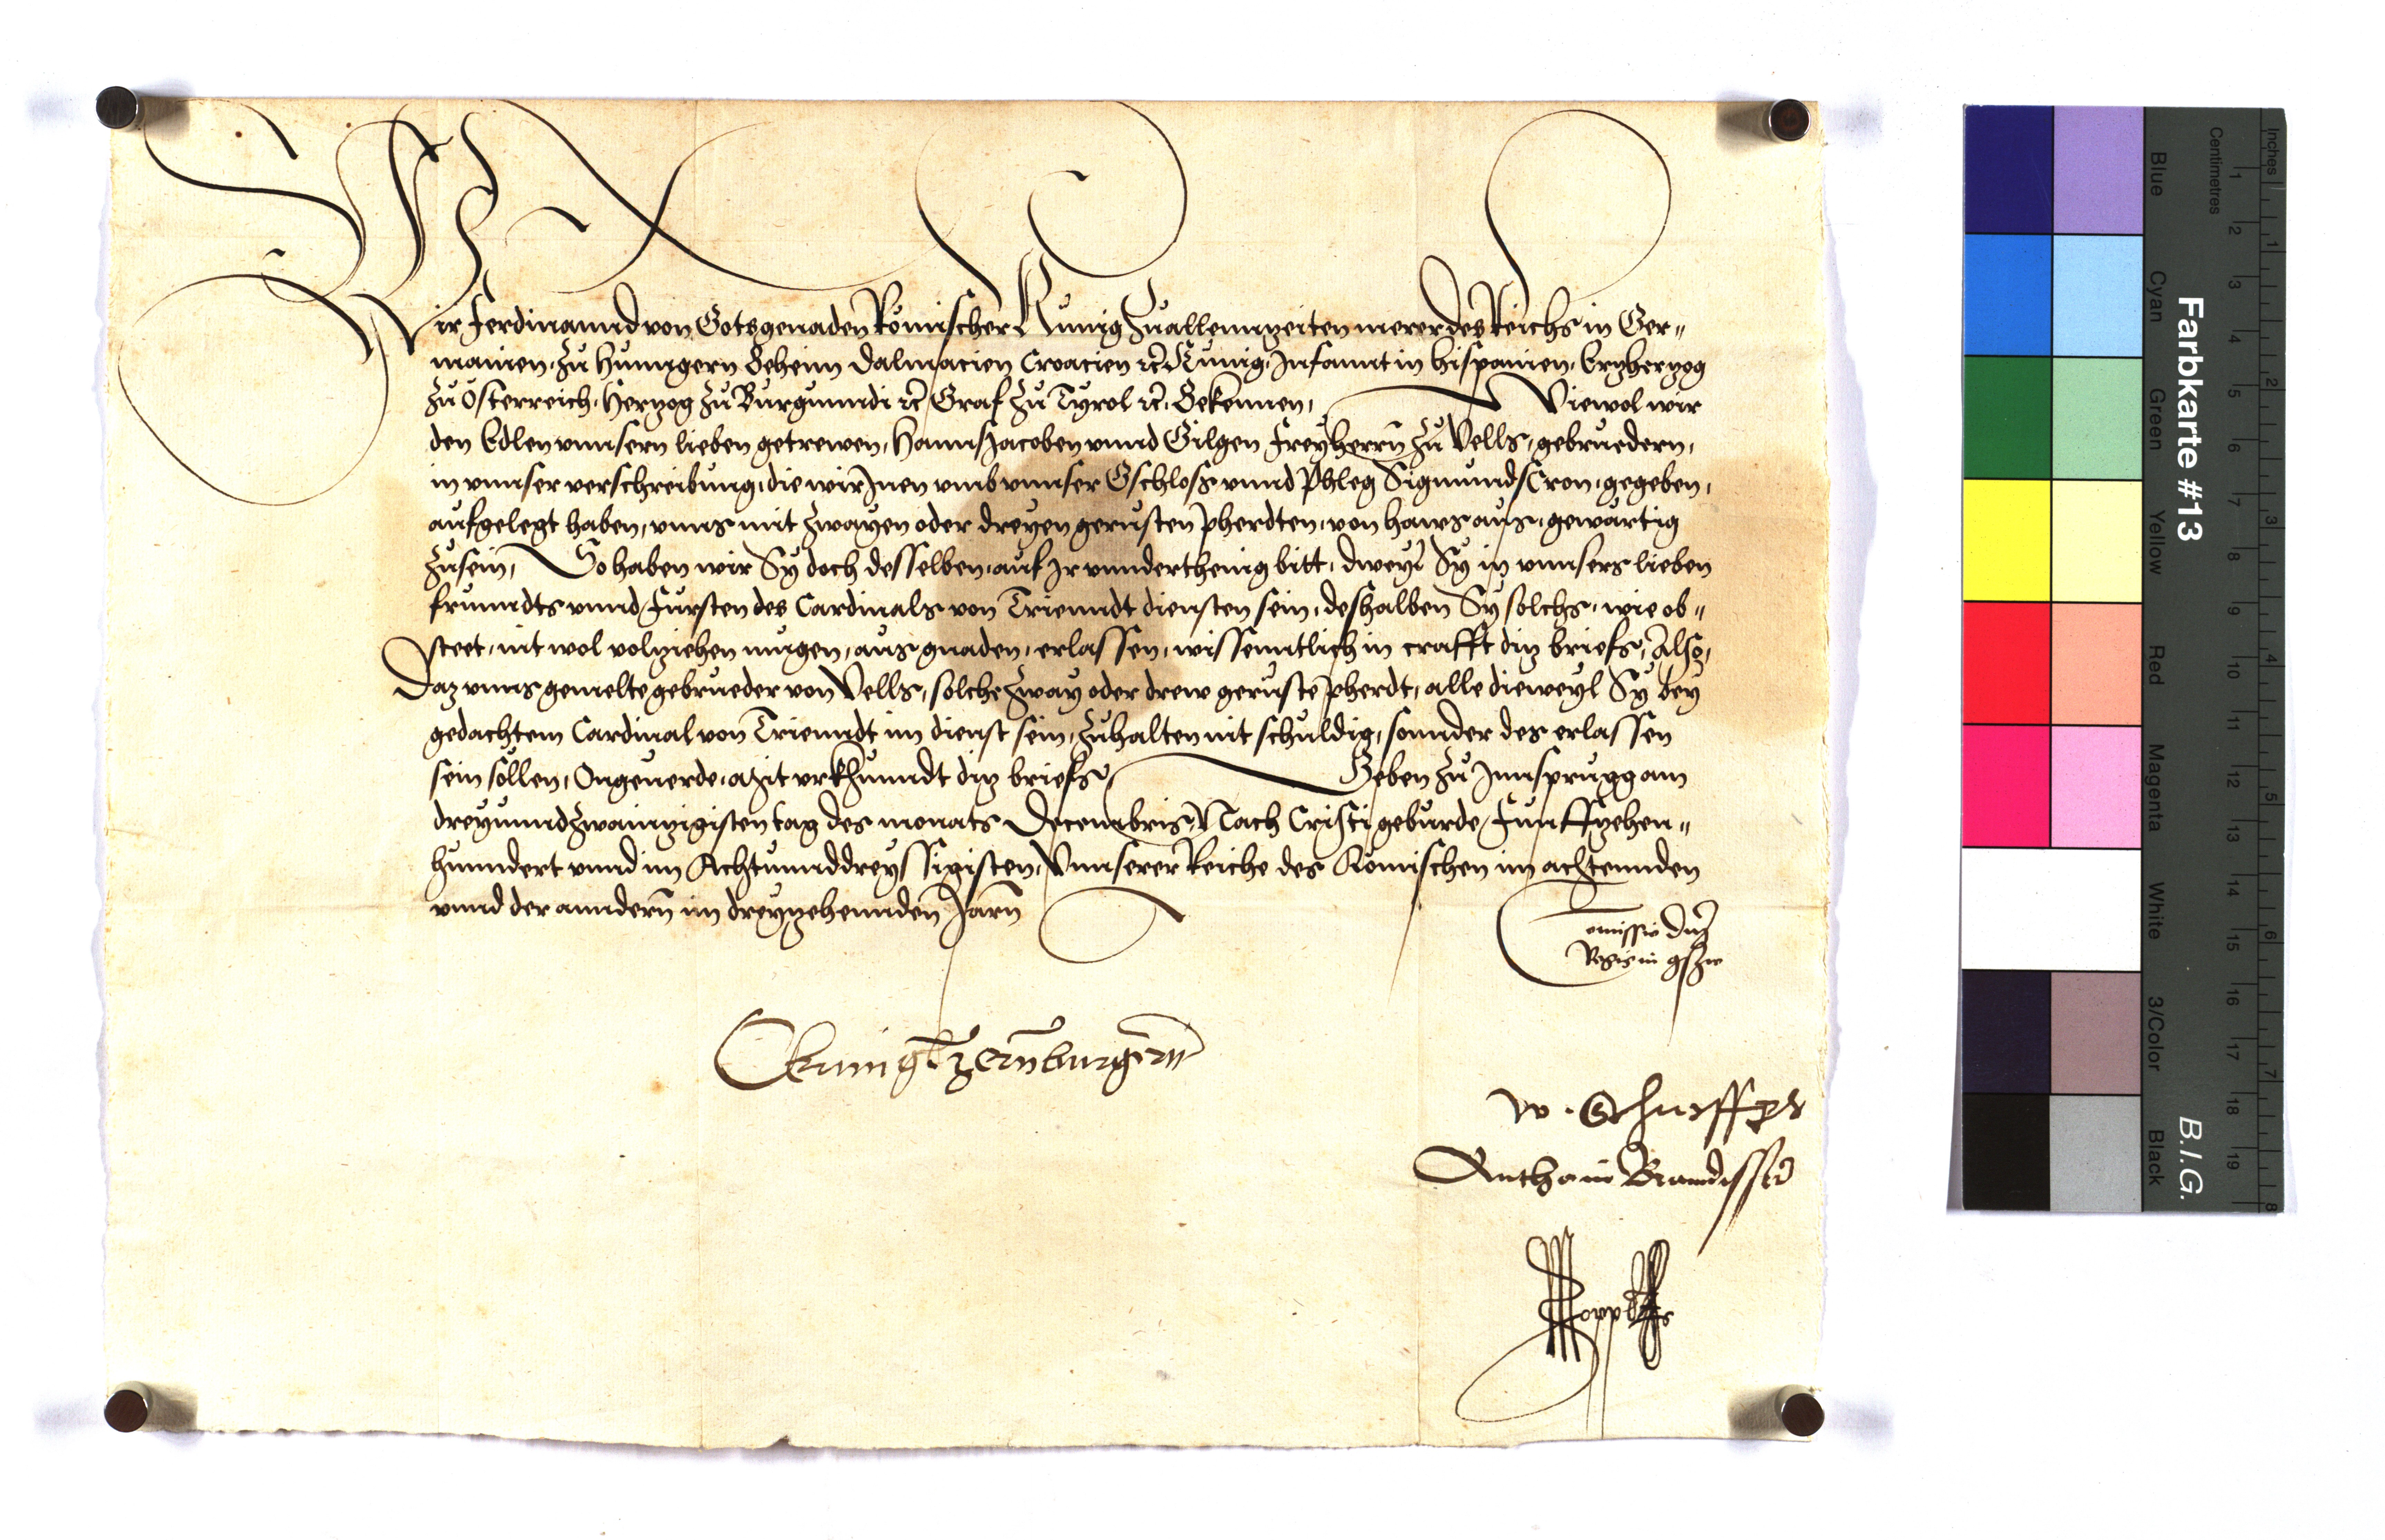 Wir Ferdinannd von Gots genaden Römischer Kunig zu allennzeiten merer des Reichs in Ger„
manien, zu Hunngern Beheim Dalmacien Croacien ꝛc Kunig, Infannt in Hispanien, Ertzhertzog
zu Österreich, Hertzog zu Burgunndi ꝛc Graf zu Tyrol ꝛc. Bekennen, Wiewol wir
den Edlen vnnsern lieben getrewen, Hanns Jacoben vnnd Gilgen Freyherrn zu Vells, gebruedern,
in vnnser verschreibung, die wir Inen vmb vnnser Gschloss vnnd Phleg Sigmundscron, gegeben,
aufgelegt haben, vnns mit zwayen oder dreyen gerusten pherdten, von haws aus, gewärtig
zusein, So haben wir Sy doch desselben, auf Ir vnnderthenig bitt, dweyl Sy in vnnsers lieben
frunndts vnnd Fürsten des Cardinals von Trienndt diensten sein, deshalben Sy solchs, wie ob„
steet, nit wol volziehen mugen, aus gnaden, erlassen, wissenntlich in crafft ditz briefs, Also,
Daz vnns gemelte gebrueder von Vells, solche zway oder drew geruste pherdt, alle dieweyl Sy bey
gedachtem Cardinal von Trienndt im dienst sein, zuhalten nit schuldig, sonnder des erlassen
sein sollen, Ongeuerde, Mit vrkhunndt ditz briefs, Geben zu Innsprugg am
dreyunndzwainzigisten tag des monats Decembris, Nach Cristi geburde Funffzehen„
hunndert vnnd im Achtunnddreyssigisten, Vnnserer Reiche des Römischen im achtennden
vnnd der anndern im dreyzehennden Jarn
Comissio dni
Regis in 
W. Schurff
Anthoni Brandisser